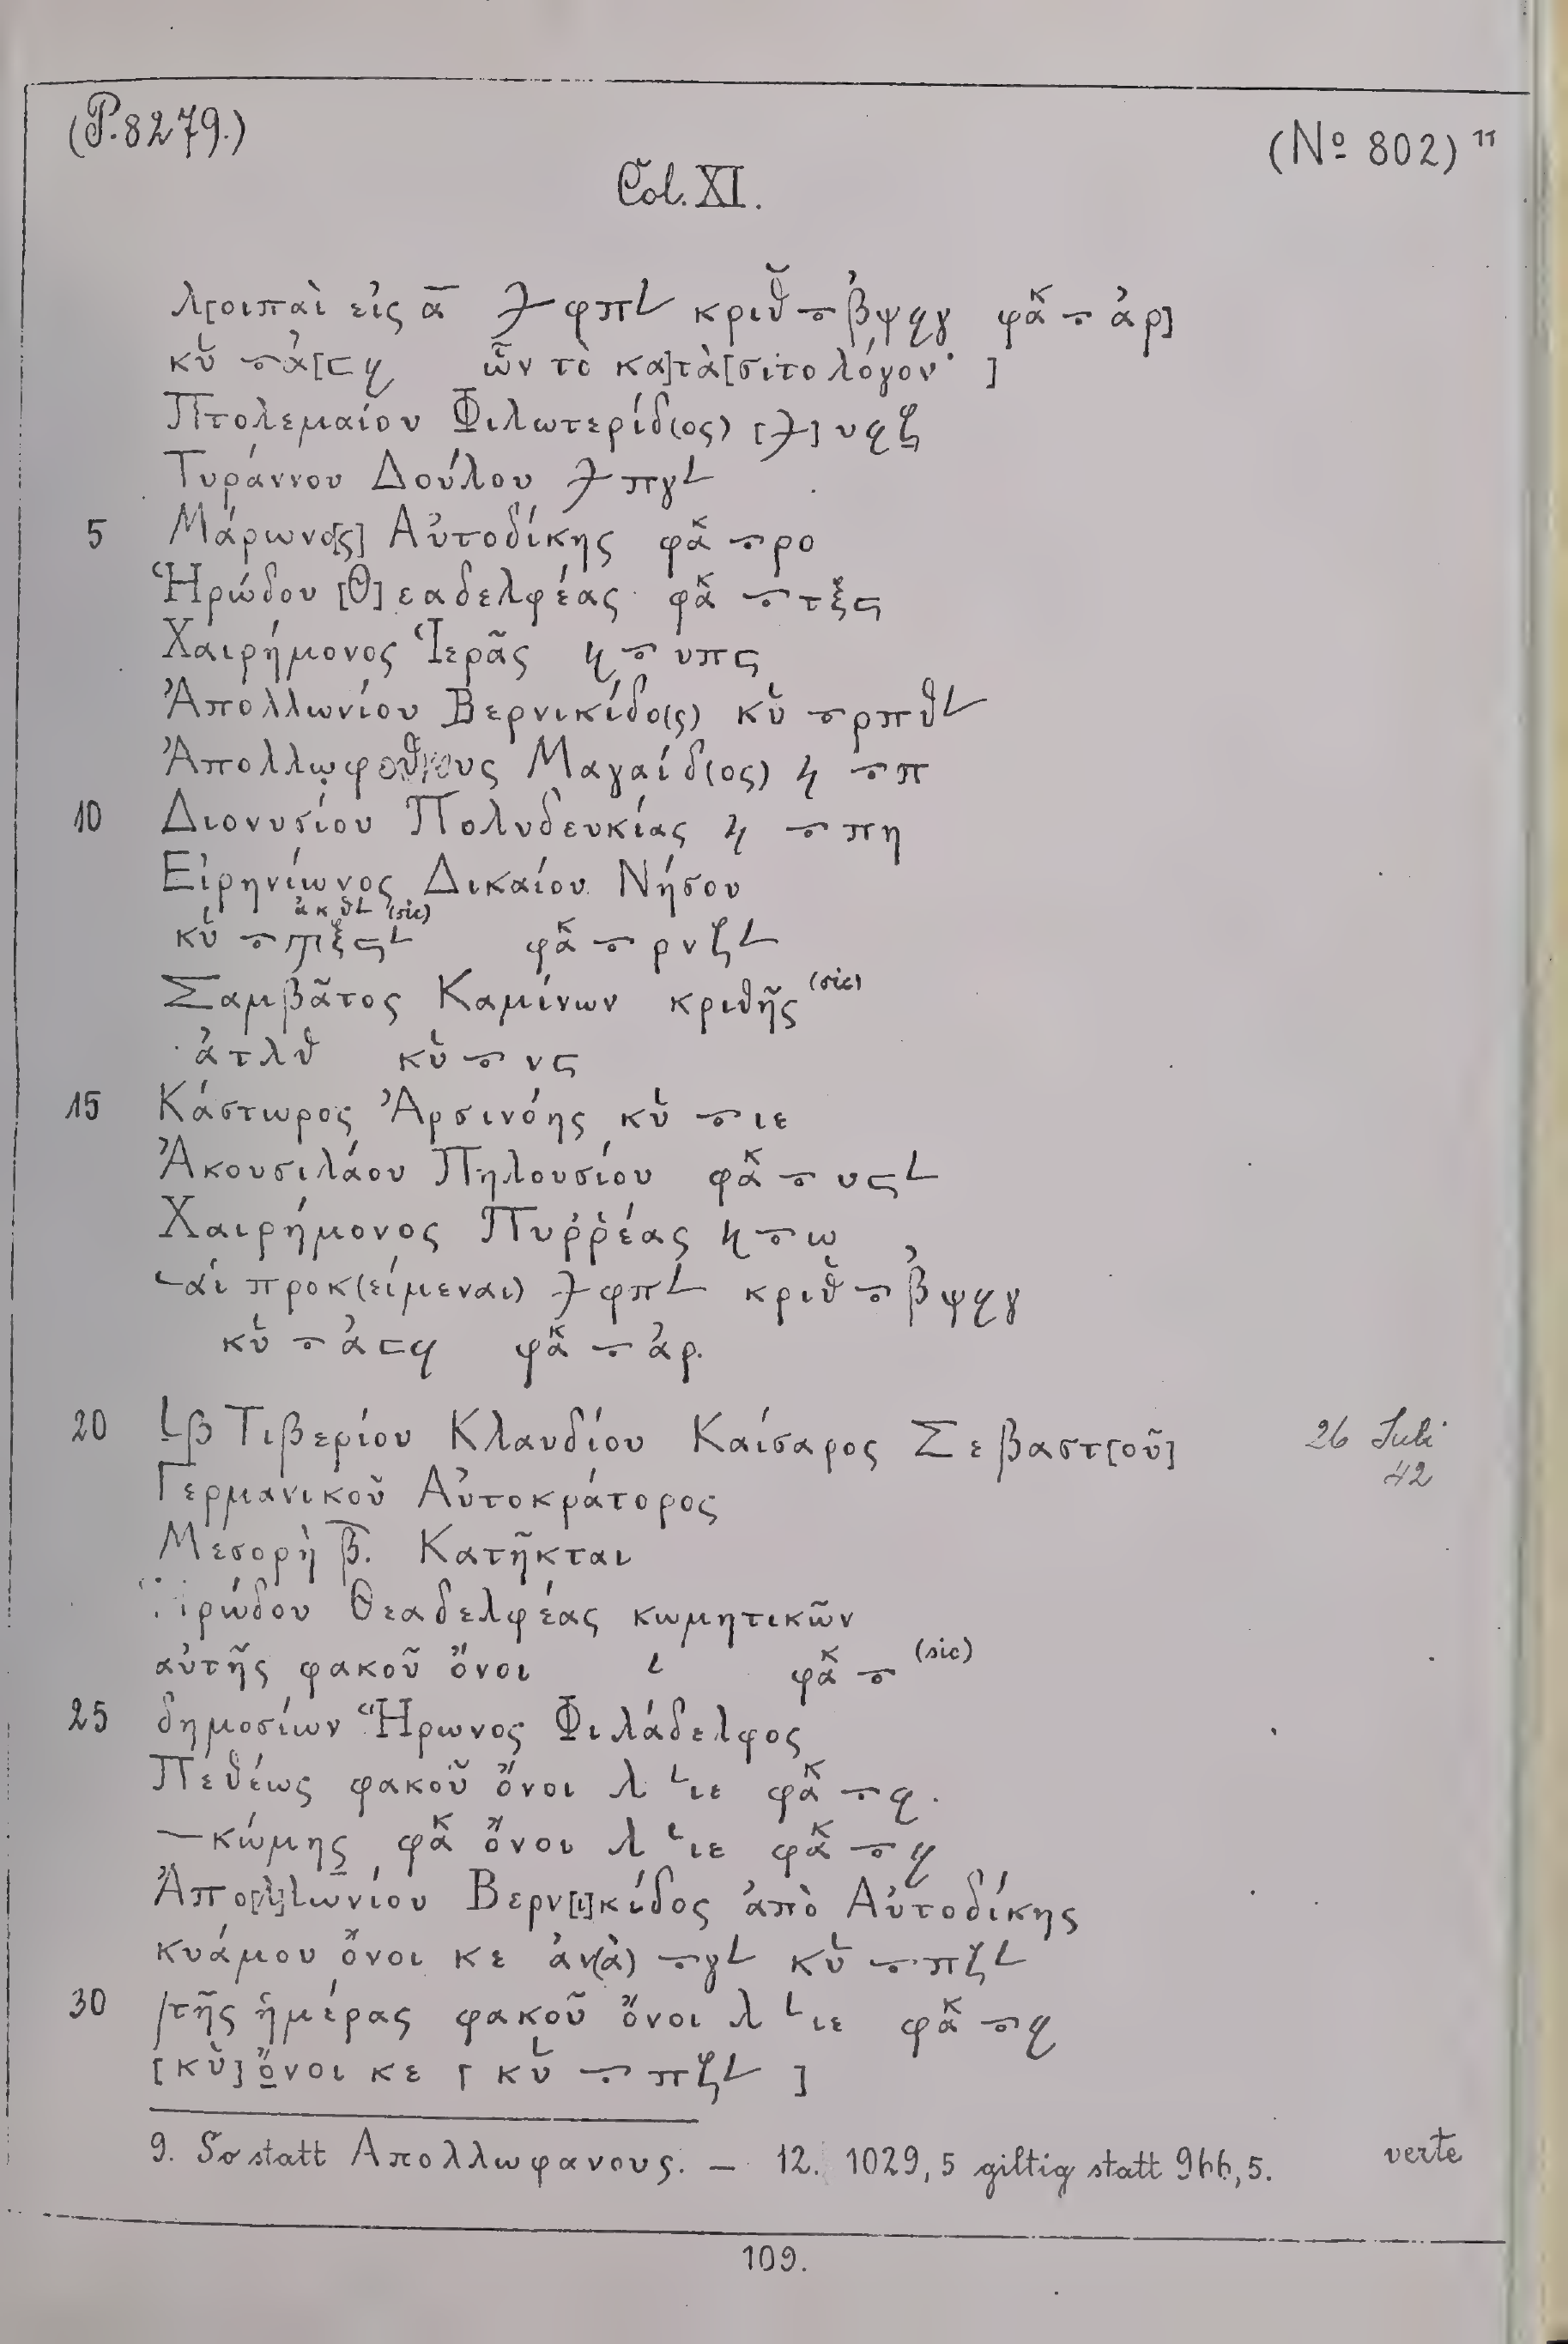 (P. 8279.)
(Nº 802) 11
Col. XI.
λ[οιπαὶ εἰς ᾱ 𐅾 φπ𐅵 κριθ ⦵ ͵βψϟγ φακ ⦵ ͵αρ]
κυ ⦵ ͵α[σϟ ὧν τὸ κα]τὰ[σιτολόγον· ]
Πτολεμαίου Φιλωτερίδ(ος) [𐅾] υϟζ
Τυράννου Δούλου 𐅾 πγ𐅵
5 Μάρωνο[ς] Αὐτοδίκης φακ ⦵ ρο
Ἡρώδου [Θ]εαδελφέας φακ ⦵ τξϛ
Χαιρήμονος Ἱερᾶς ϟ ⦵ υπϛ
Ἀπολλωνίου Βερνικίδο(ς) κυ ⦵ ρπθ𐅵
Ἀπολλωφοθνους Μαγαίδ(ος) ϟ ⦵ π
10 Διονυσίου Πολυδευκίας ϟ ⦵ πη
Εἰρηνίωνος Δικαίου Νήσου
͵ακθ𐅵 (sic)
κυ ⦵ ϡξϛ𐅵 φακ ⦵ ρνζ𐅵
Σαμβᾶτος Καμίνων κριθῆς (sic)
͵ατλθ κυ ⦵ νϛ
15 Κάστωρος Ἀρσινόης κυ ⦵ ιε
Ἀκουσιλάου Πηλουσίου φακ ⦵ υϛ𐅵
Χαιρήμονος Πυῤῥέας ϟ ⦵ ω
αἱ προκ(είμεναι) 𐅾 φπ𐅵 κριθ ⦵ ͵βψϟγ
κυ ⦵ ͵ασϟ φακ ⦵ ͵αρ.
20 𐅹β Τιβερίου Κλαυδίου Καίσαρος Σεβαστ[οῦ] 26 Juli 42
Γερμανικοῦ Αὐτοκράτορος
Μεσορὴ β̄. Κατῆκται
Ἡρώδου Θεαδελφέας κωμητικῶν
αὐτῆς φακοῦ ὄνοι ι φακ ⦵ (sic)
25 δημοσίων Ἥρωνος Φιλάδελφος
Πεθέως φακοῦ ὄνοι λ 𐅹ιε φακ ⦵ ϟ.
—κώμης φακ ὄνοι λ 𐅹ιε φακ ⦵ ϟ
Ἀπο[λ]λωνίου Βερν[ι]κίδος ἀπὸ Αὐτοδίκης
κυάμου ὄνοι κε ἀν(ὰ) ⦵ γ𐅵 κυ ⦵ πζ𐅵
30 /τῆς ἡμέρας φακοῦ ὄνοι λ 𐅹ιε φακ ⦵ ϟ
[κυ] ὄνοι κε [κυ ⦵ πζ𐅵 ]
9. So statt Απολλωφανους. — 12. 1029,5 giltig statt 966,5.
verte
109.